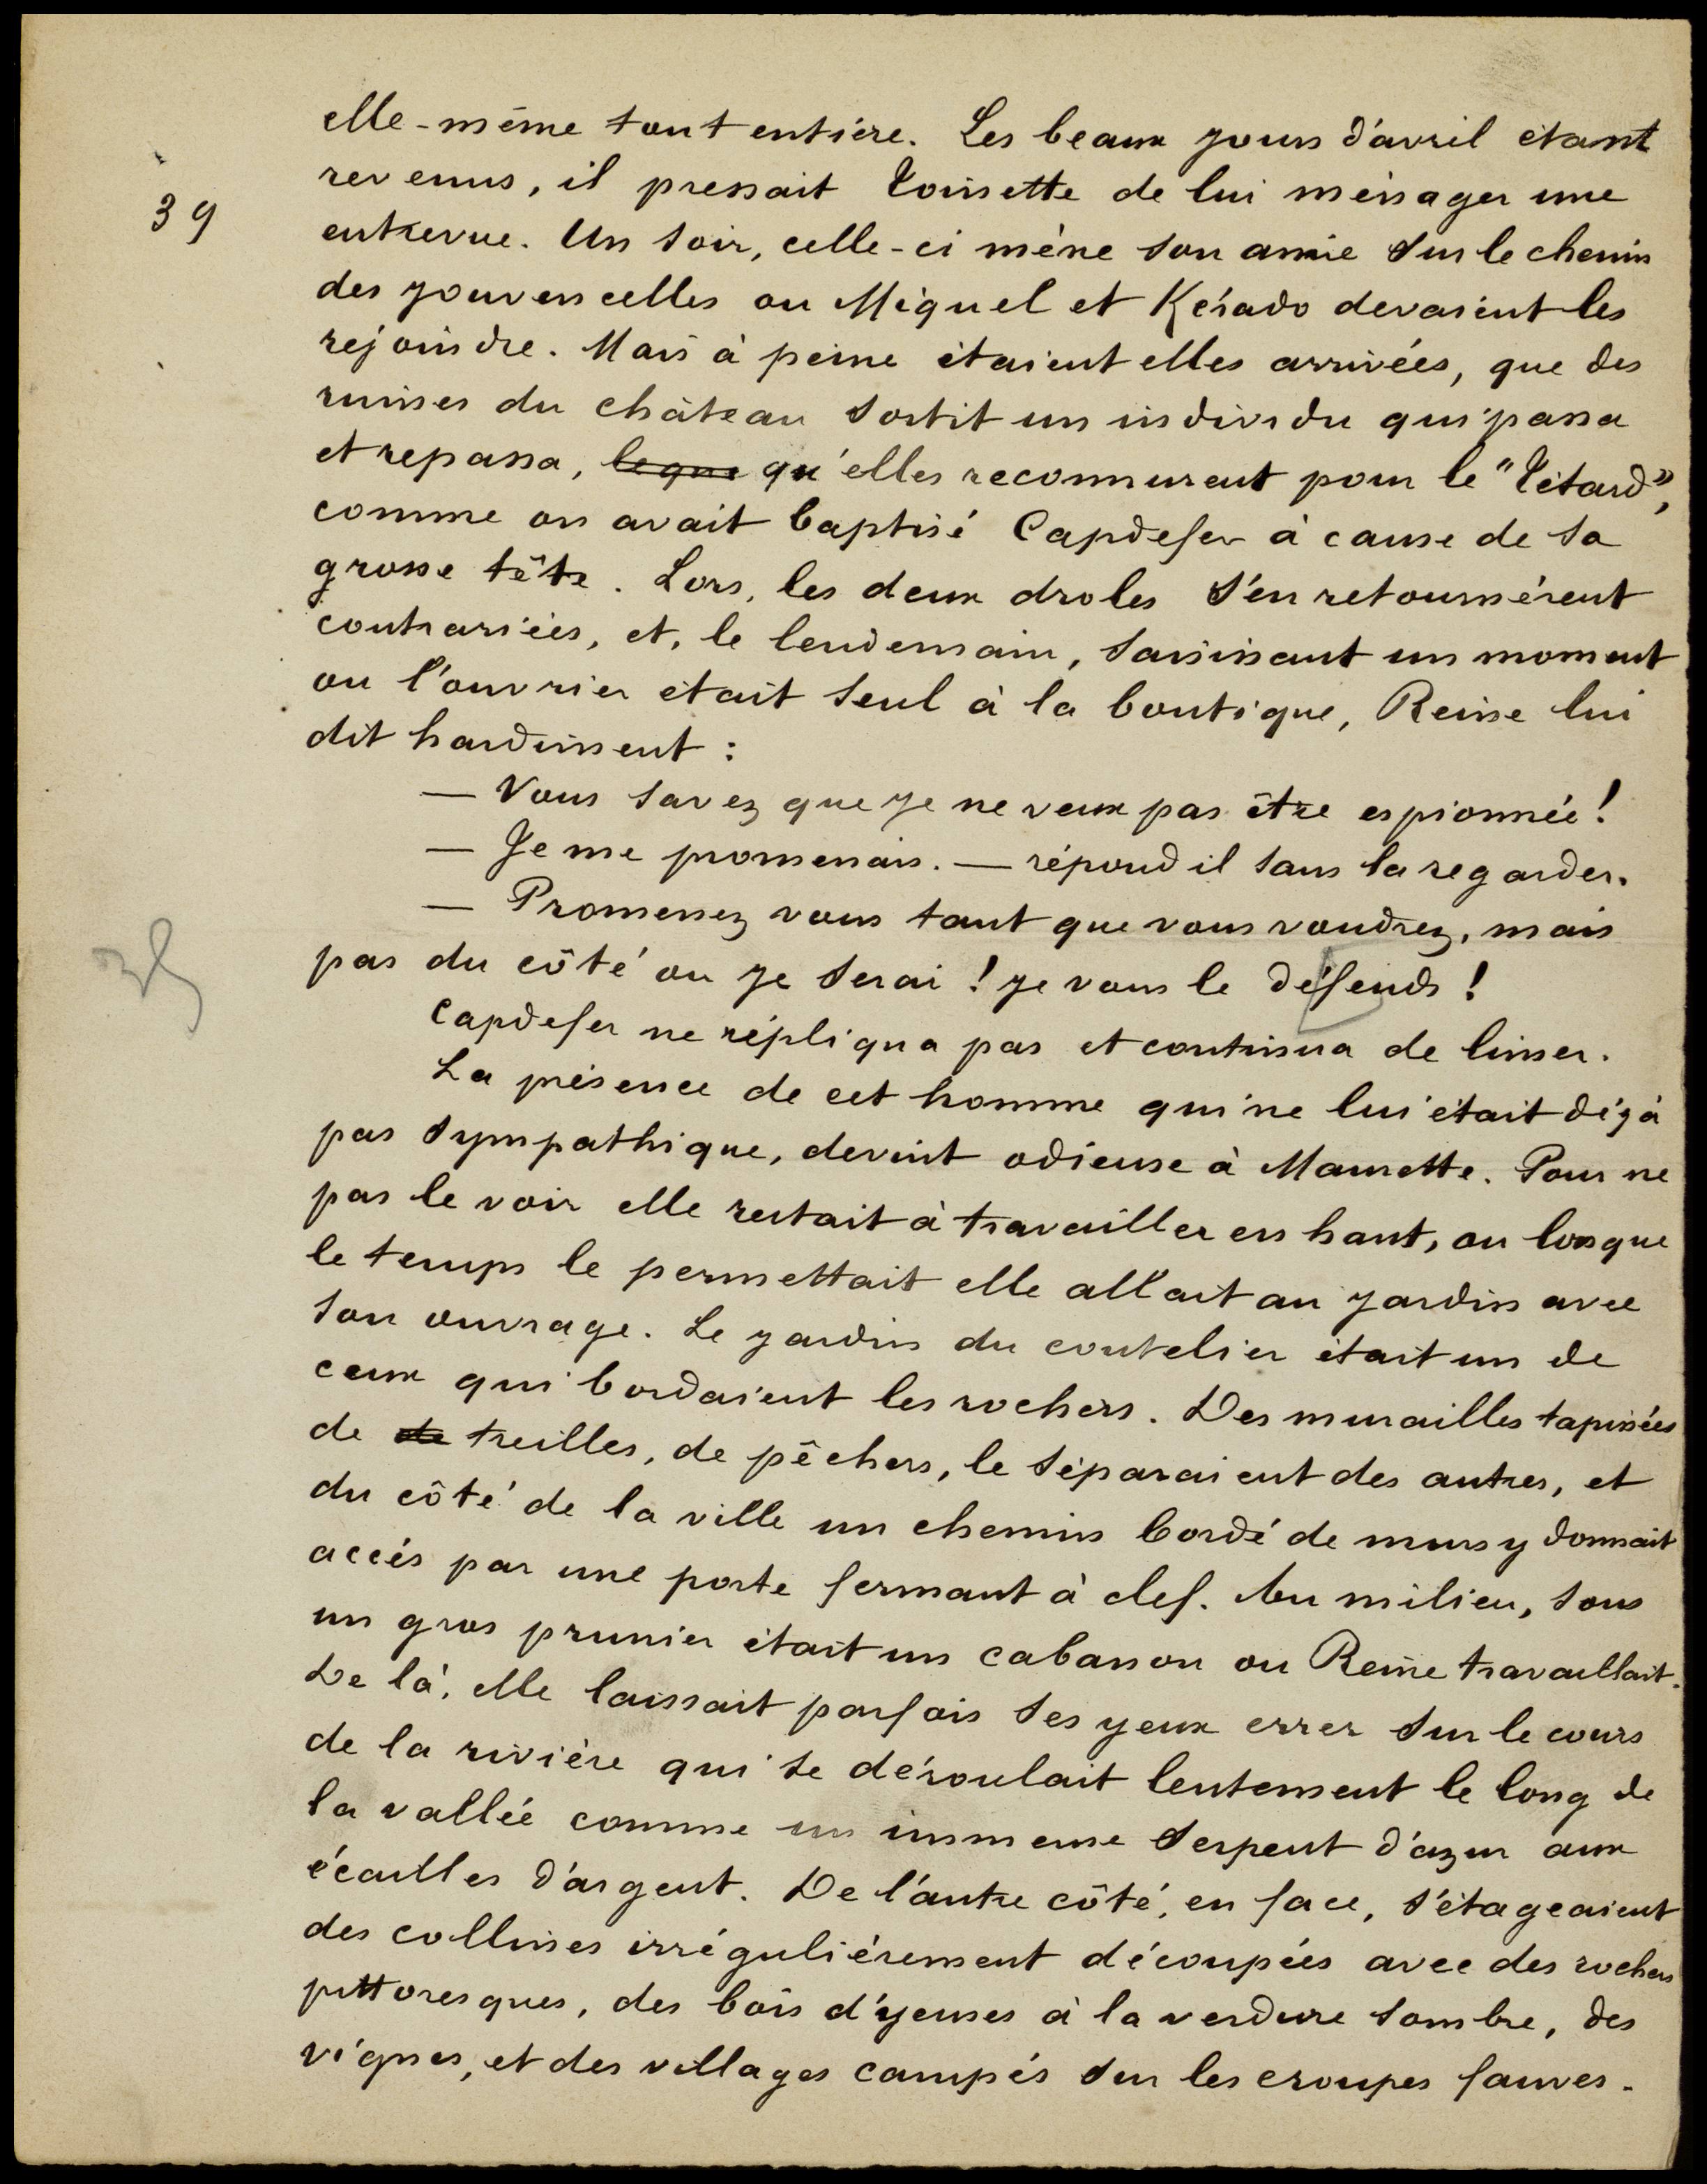 elle-même tout entière. Les beaux jours d'avril étant
revenus, il pressait Toinette de lui ménager une
39
entrevue. Un soir, celle-ci mène son amie sur le chemin
des jouvencelles ou Miquel et Kérado devaient les
rejoindre. Mais à peine étaient elles arrivées, que des
ruines du château sortit un individu qui passa
et repassa, leque qu'elles reconnurent pour le "Tétard",
comme on avait baptisé Capdefer à cause de sa
grosse tête. Lors, les deux droles s'en retournèrent
contrariées, et, le lendemain, saisissant un moment
ou l'ouvrier était seul à la boutique, Reine lui
dit hardiment :
— Vous savez que je ne veux pas être espionnée !
— Je me promenais. — répond il sans la regarder.
— Promenez vous tant que vous voudrez, mais
pas du côté ou je serai ! je vous le défends !
Capdefer ne répliqua pas et continua de limer.
La présence de cet homme qui ne lui était déjà
pas sympathique, devint odieuse à Mamette. Pour ne
pas le voir elle restait à travailler en haut, ou lorsque
le temps le permettait elle allait au jardin avec
son ouvrage. Le jardin du coutelier était un de
ceux qui bordaient les rochers. Des murailles tapissées
de de treilles, de pêchers, le séparaient des autres, et
du côté de la ville un chemin bordé de murs y donnait
accès par une porte fermant à clef. Au milieu, sous
un gros prunier était un cabanon ou Reine travaillait.
De là, elle laissait parfois ses yeux errer sur le cours
de la rivière qui se déroulait lentement le long de
la vallée comme un immense serpent d'azur aux
écailles d'argent. De l'autre côté, en face, s'étageaient
des collines irrégulièrement découpées avec des rochers
pittoresques, des bois d'yeuses à la verdure sombre, des
vignes, et des villages campés sur les croupes fauves.